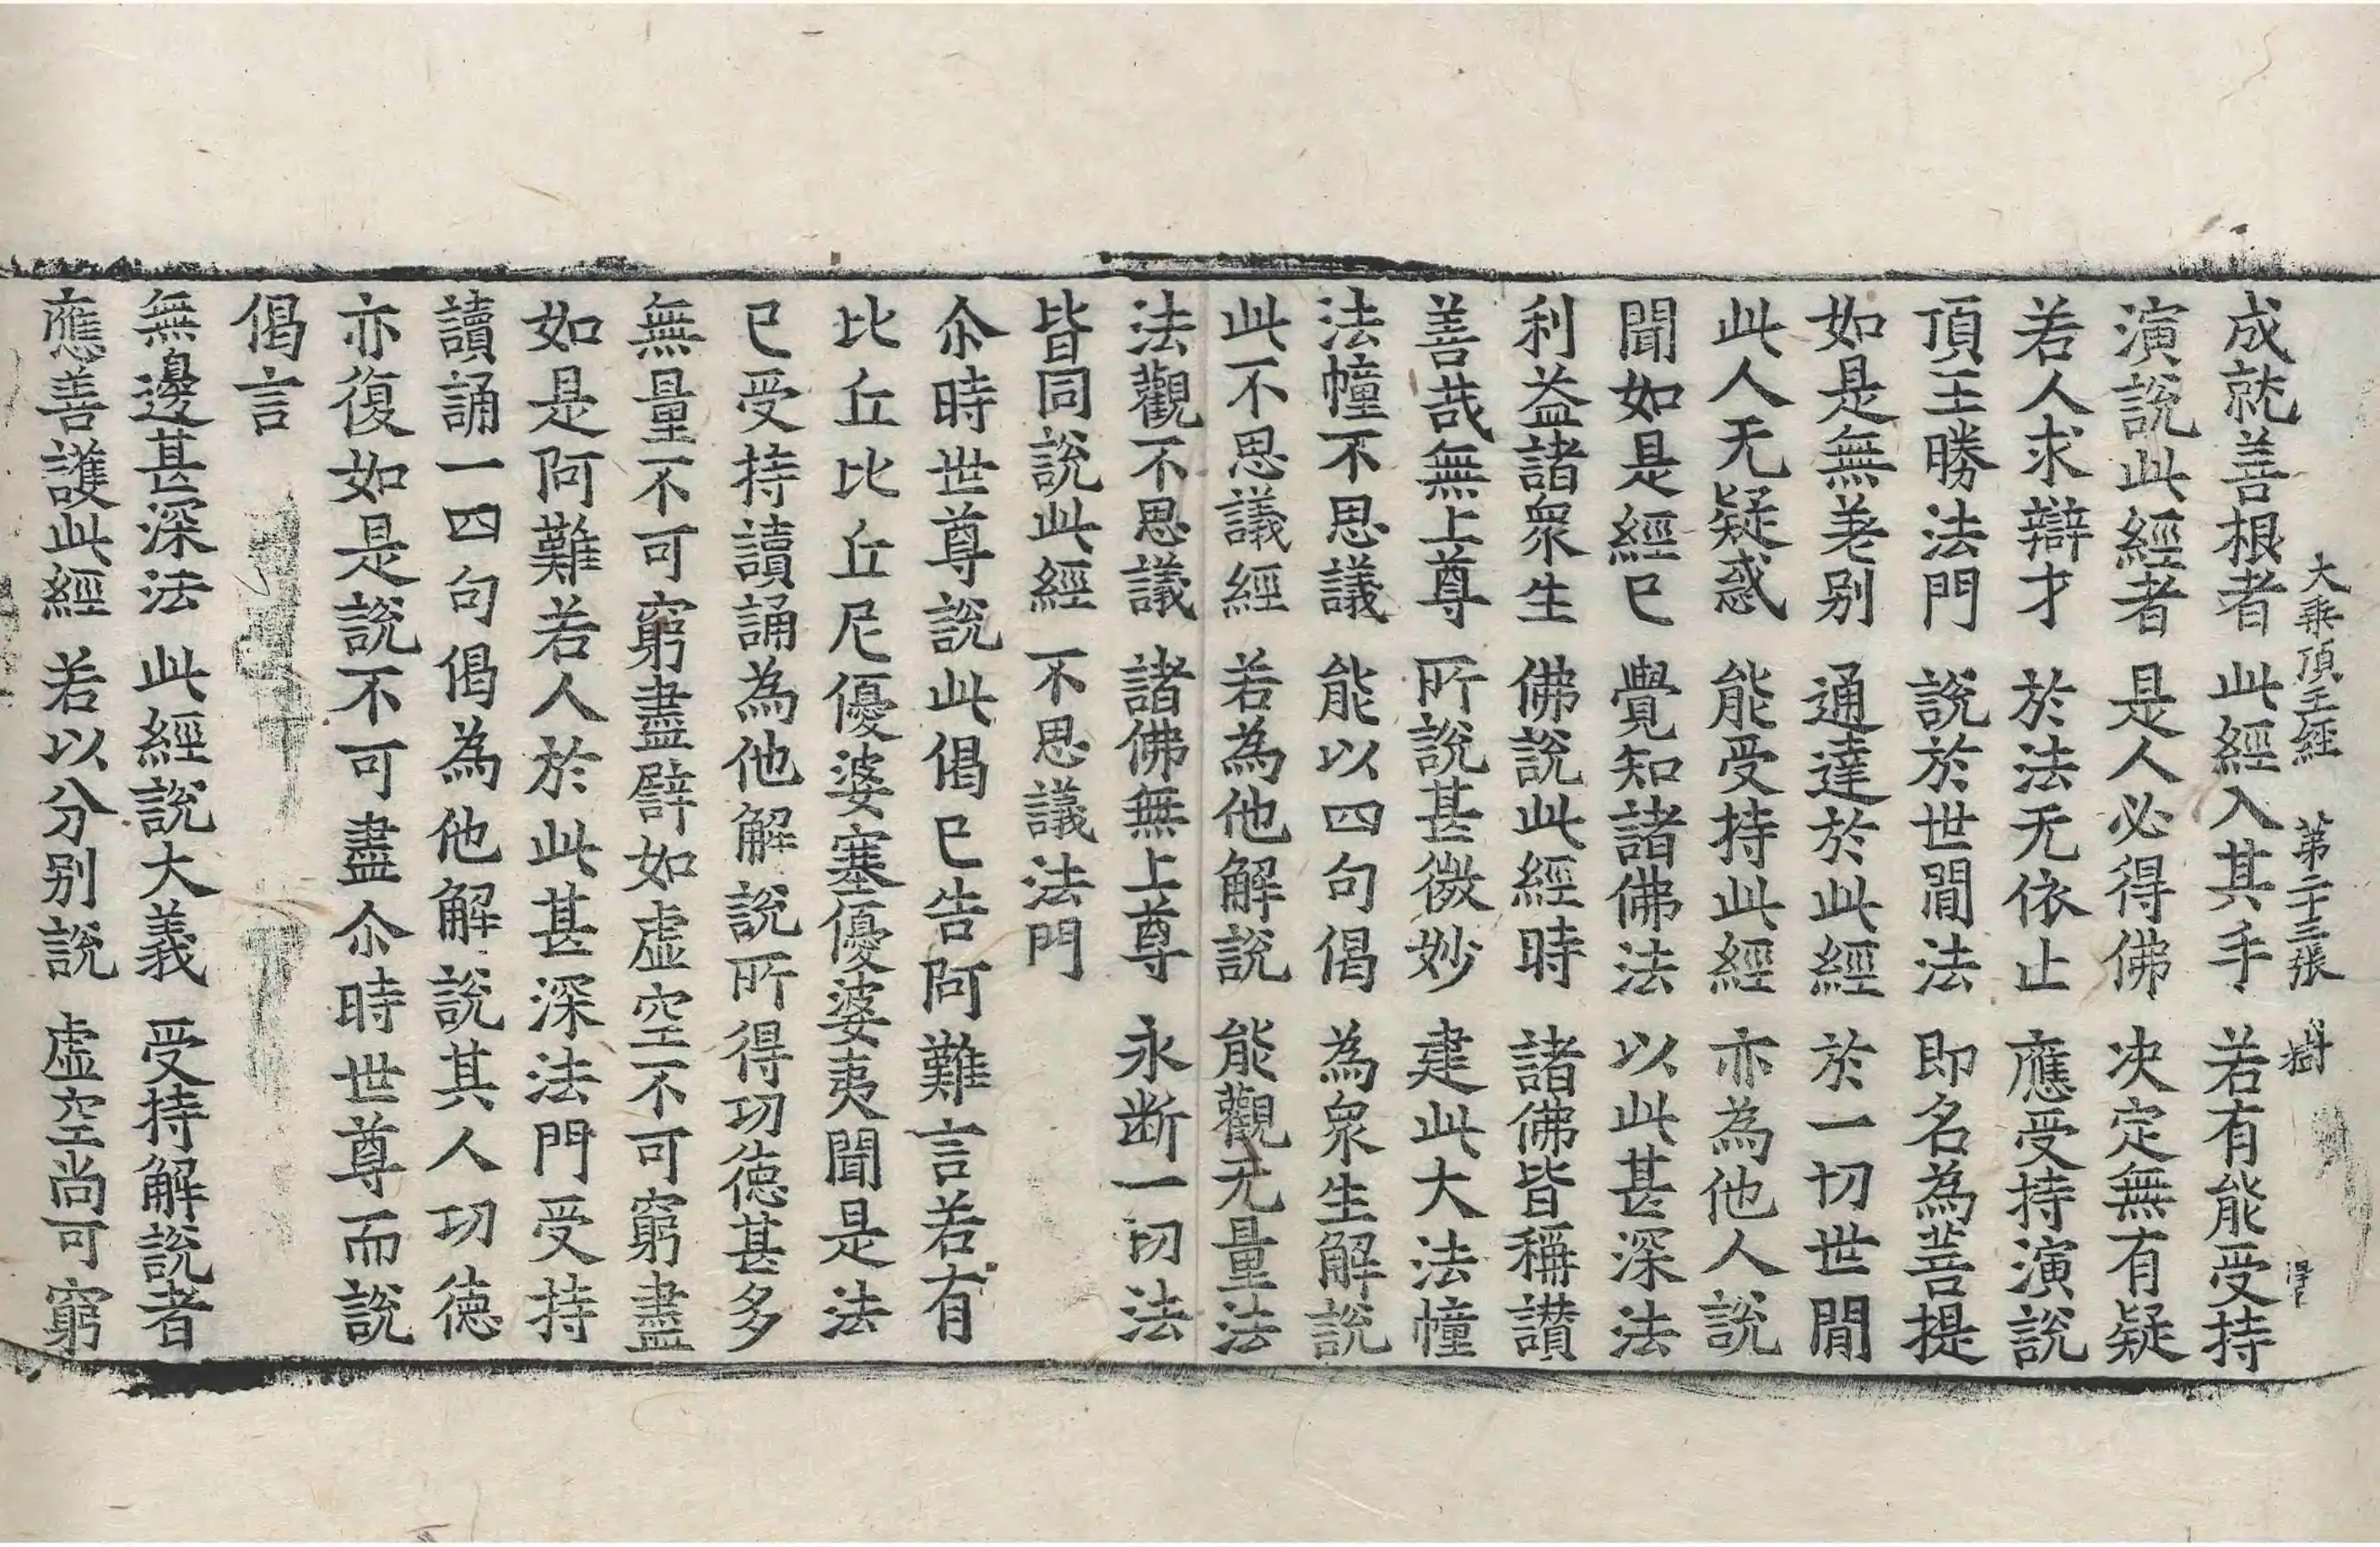 大乘頂王經 第二十三張 樹
成就善根者 此經入其手 若有能受持
演說此經者 是人必得佛 决定無有疑
若人求辯才 於法无依止 應受持演說
頂王勝法門 說於世間法 即名為菩提
如是無差别 通達於此經 於一切世間
此人无疑惑 能受持此經 亦為他人說
聞如是經已 覺知諸佛法 以此甚深法
利益諸衆生 佛說此經時 諸佛皆稱讃
善哉無上尊 所說甚微妙 建此大法幢
法幢不思議 能以四句偈 為衆生解說
此不思議經 若為他解說 能觀无量法
法觀不思議 諸佛無上尊 永断一切法
皆同說此經 不思議法門
尒時世尊說此偈已告阿難言若有
比丘比丘尼優婆塞優婆夷聞是法
已受持讀誦為他解說所得功德甚多
無量不可窮盡譬如虛空不可窮盡
如是阿難若人於此甚深法門受持
讀誦一四句偈為他解說其人功德
亦復如是說不可盡尒時世尊而說
偈言
無邊甚深法 此經說大義 受持解說者
應善護此經 若以分别說 虛空尚可窮